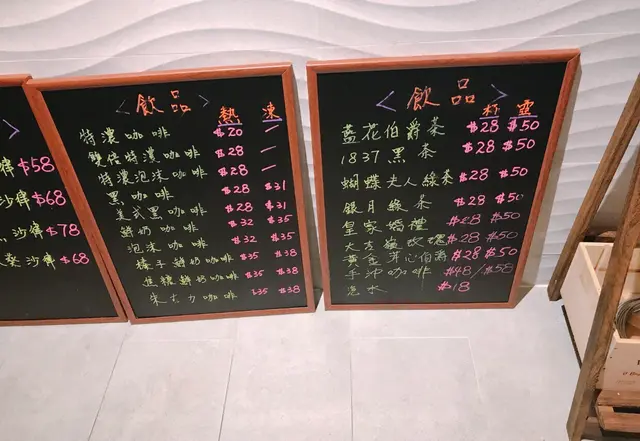 $58
沙律 $68
沙律 $78
沙律 $68
< 飲品 >
熱 凍
特濃咖啡 $20 —
雙倍特濃咖啡 $28 —
特濃泡沫咖啡 $28 —
黑咖啡 $28 $31
美式黑咖啡 $28 $31
鮮奶咖啡 $32 $35
泡沫咖啡 $32 $35
榛子鮮奶咖啡 $35 $38
焦糖鮮奶咖啡 $35 $38
朱古力咖啡 $35 $38
< 飲品 >
杯 壺
藍花伯爵茶 $28 $50
1837黑茶 $28 $50
蝴蝶夫人綠茶 $28 $50
銀月綠茶 $28 $50
皇家婚禮 $28 $50
玫瑰 $28 $50
黃金 伯爵 $28 $50
手沖咖啡 $48/$58
$18